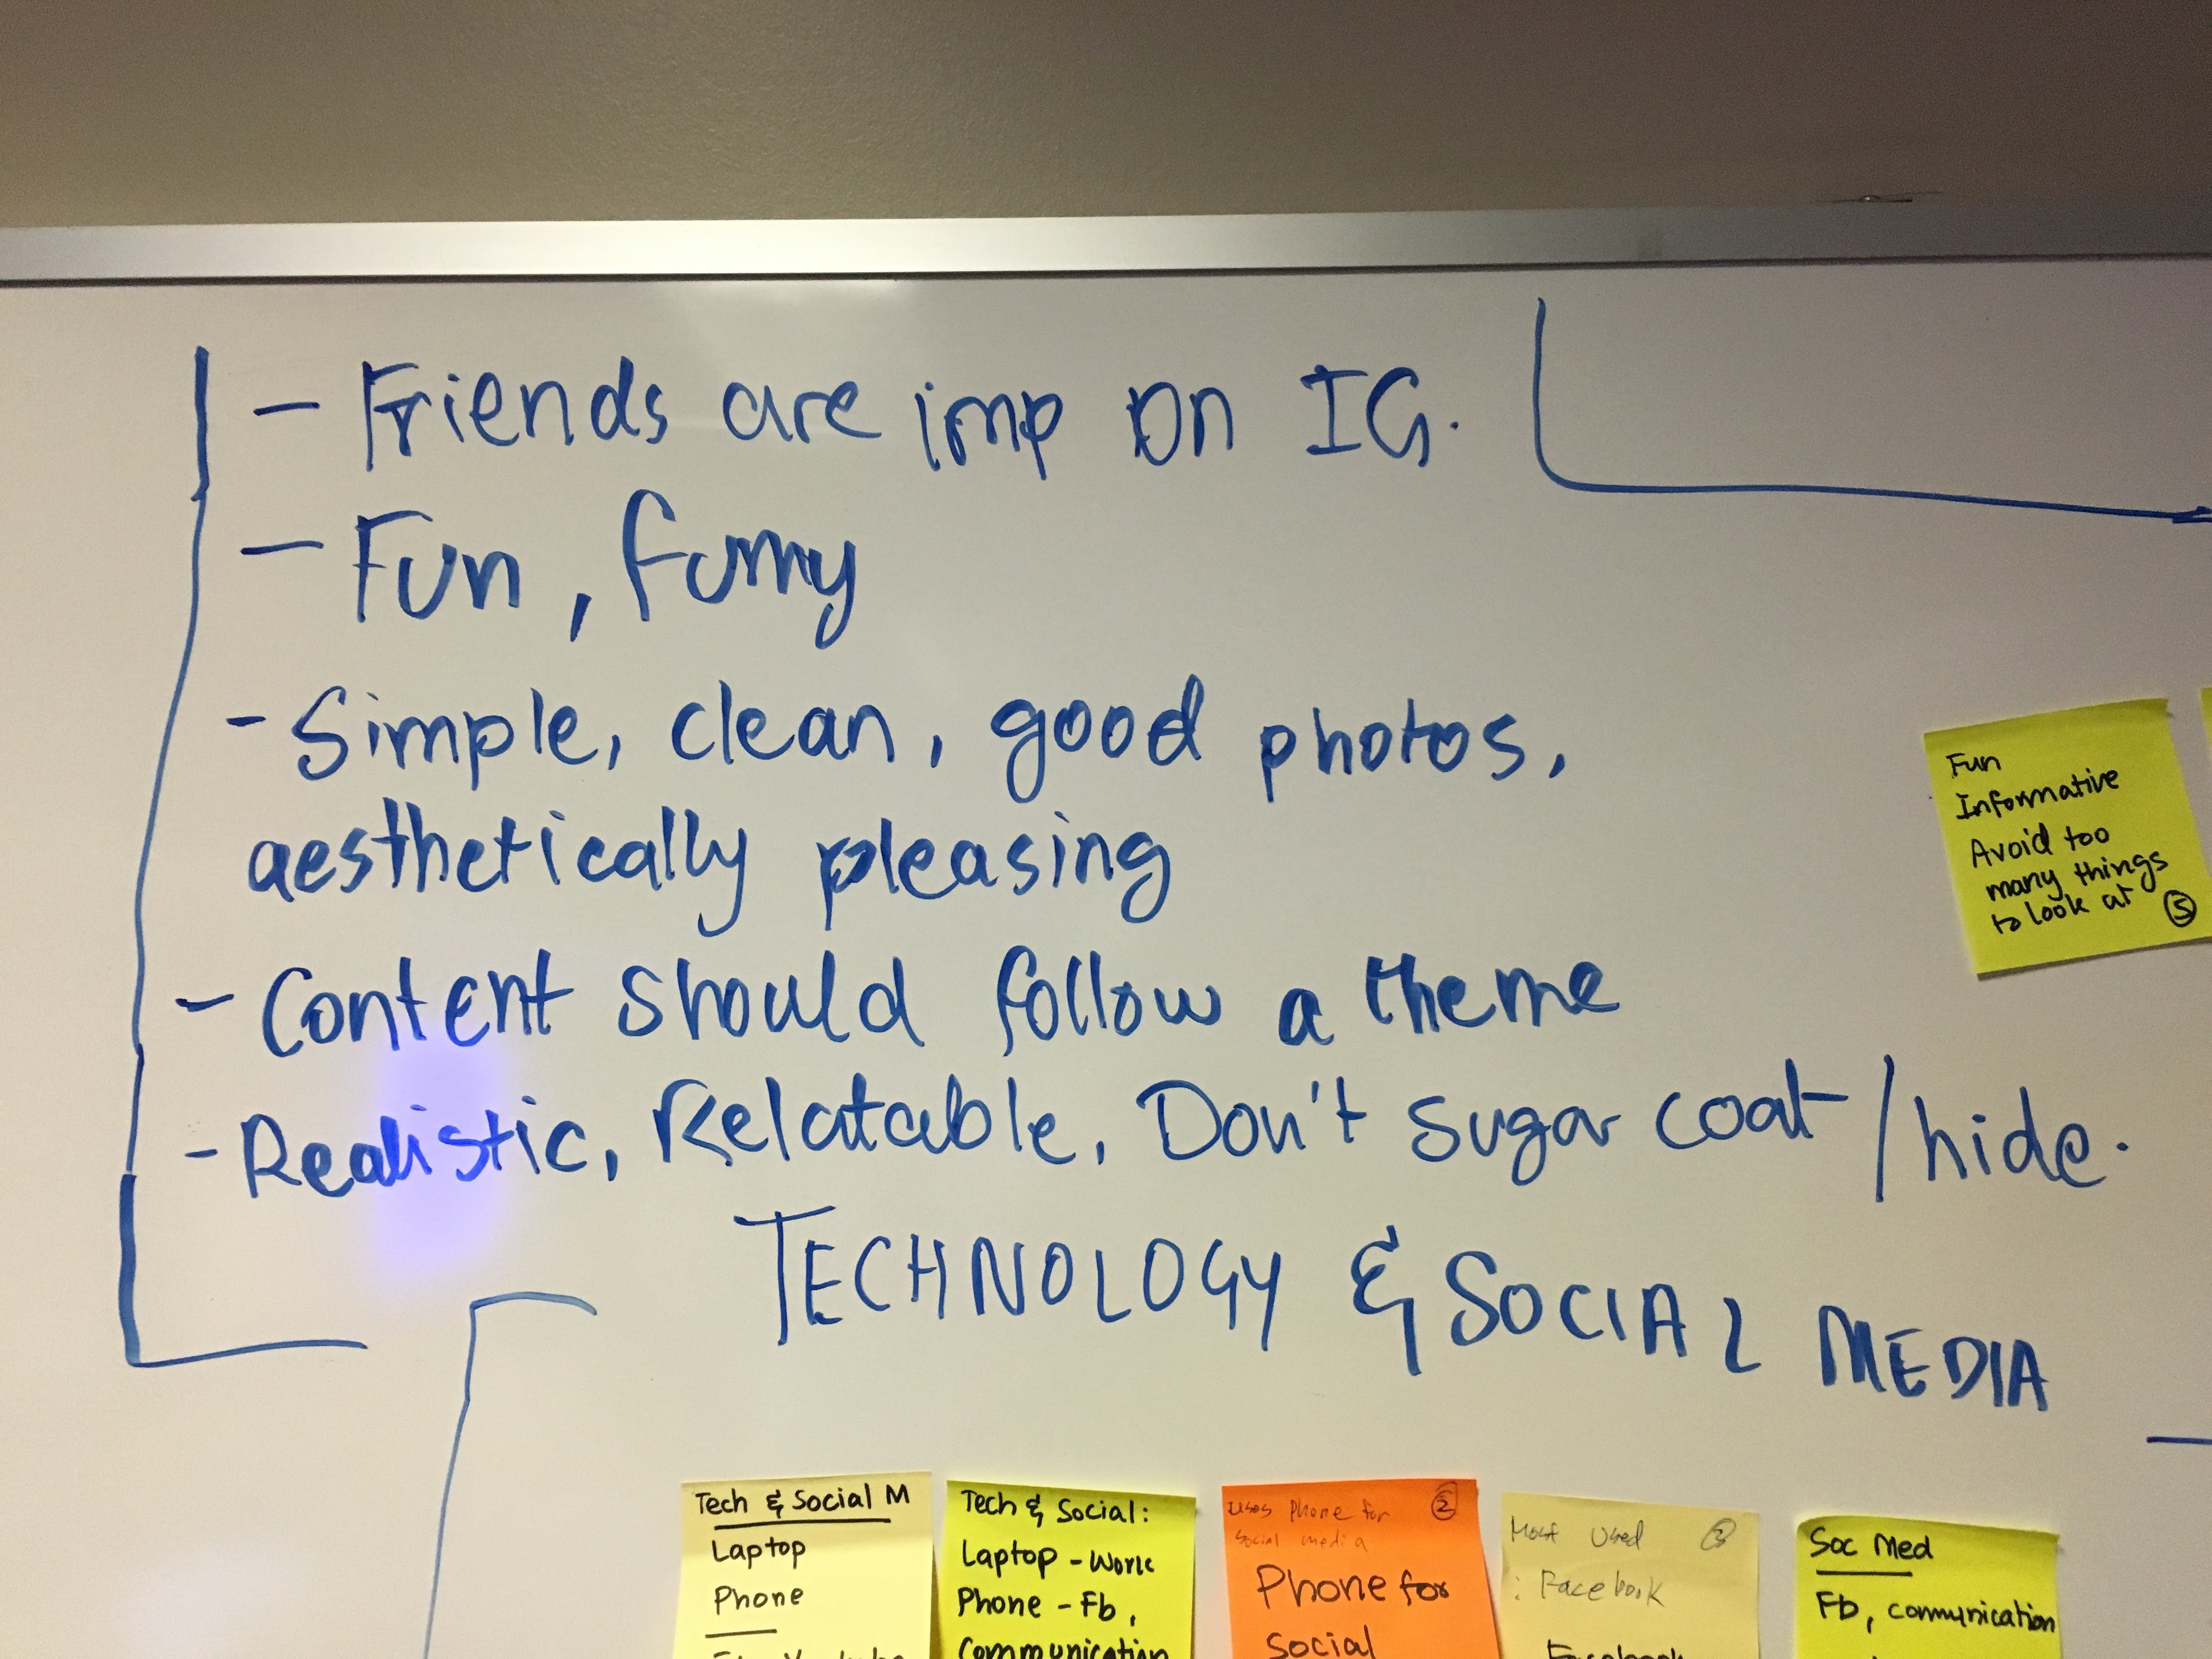 - Friends are imp on IG.
- Fun, funny
- Simple, clean, good photos,
aesthetically pleasing
- Content should follow a theme
- Realistic, Relatable, Don't sugar coat/hide.
Fun
Informative
Avoid too
many things
to look at 5
TECHNOLOGY & SOCIAL MEDIA
Tech & Social M
Laptop
Phone
Tech & Social:
Laptop - Work
Phone - Fb,
Communication
Uses phone for 2
social media
Phone for
social
Most Used 3
: Facebook
Facebook
Soc Med
Fb, communication